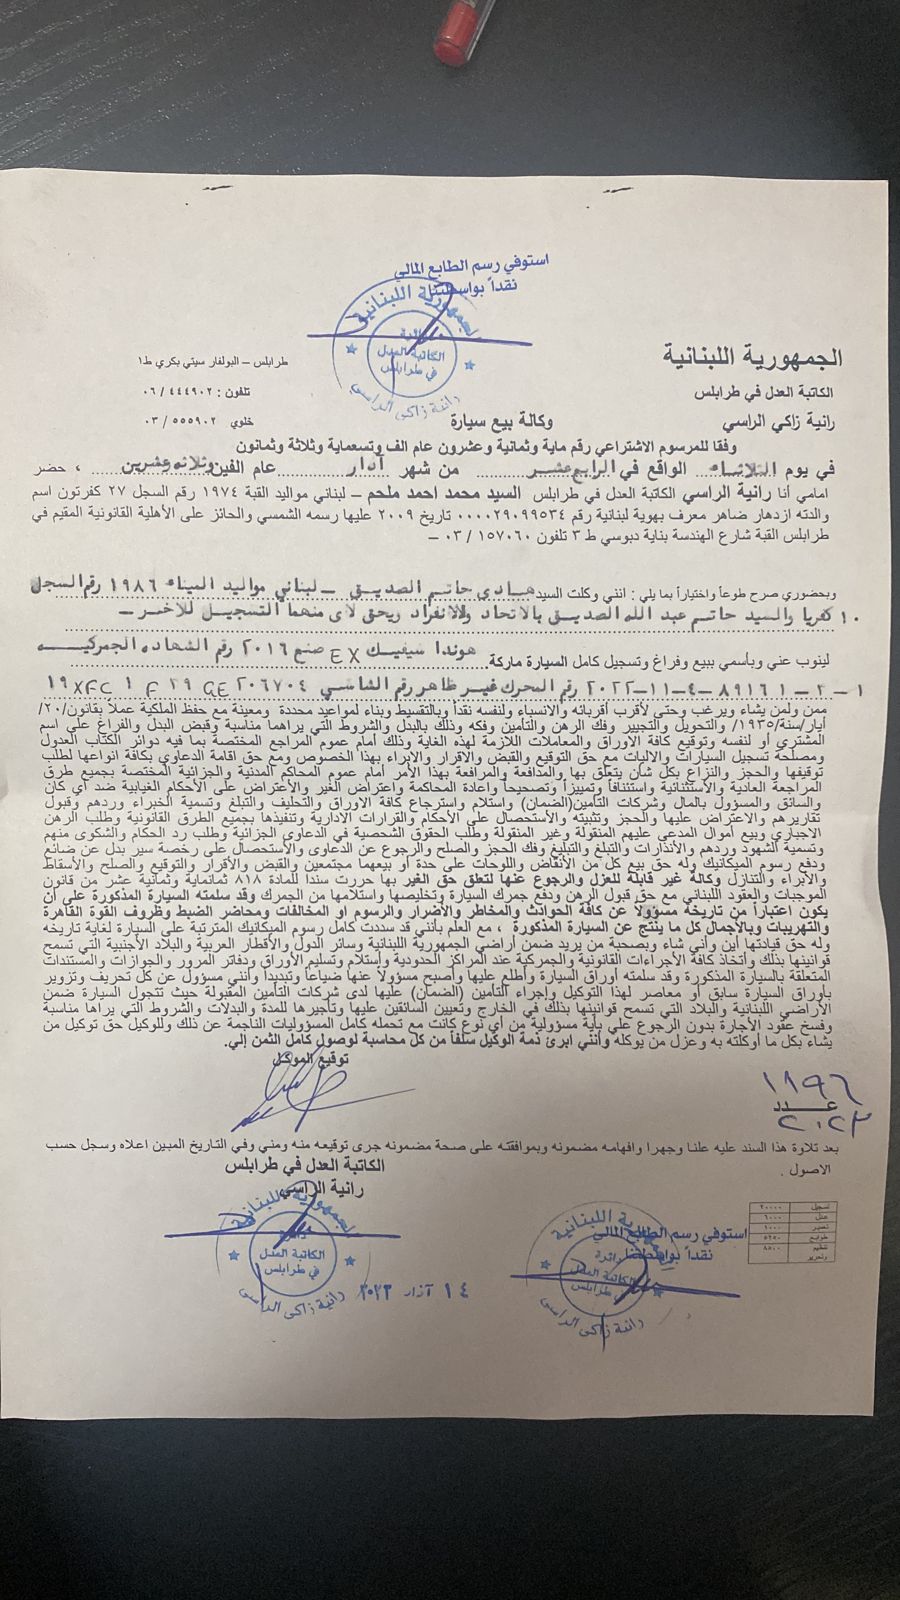 استوفي رسم الطابع المالي
نقداً بواسطتنا
الجمهورية اللبنانية
الكاتبة العدل
في طرابلس
رانية زاكي الراسي
الجمهورية اللبنانية
طرابلس – البولفار سيتي بكري ط١
الكاتبة العدل في طرابلس
تلفون : ٤٤٤٩٠٢ / ٠٦
رانية زاكي الراسي
وكالة بيع سيارة
خلوي ٥٥٥٩٠٢ / ٠٣
وفقا للمرسوم الاشتراعي رقم ماية وثمانية وعشرون عام الف وتسعماية وثلاثة وثمانون
في يوم الثلاثاء الواقع في الرابع عشر من شهر آدار عام الفين وثلاثه وعشرين ، حضر
امامي أنا رانية الراسي الكاتبة العدل في طرابلس السيد محمد احمد ملحم – لبناني مواليد القبة ١٩٧٤ رقم السجل ٢٧ كفرتون اسم
والدته ازدهار ضاهر معرف بهوية لبنانية رقم ٠٠٠٠٢٩٠٩٩٥٣٤ تاريخ ٢٠٠٩ عليها رسمه الشمسي والحائز على الأهلية القانونية المقيم في
طرابلس القبة شارع الهندسة بناية دبوسي ط ٣ تلفون ١٥٧٠٦٠ / ٠٣ –
وبحضوري صرح طوعاً واختياراً بما يلي : انني وكلت السيد هادي حاتم الصديق – لبناني مواليد الميناء ١٩٨٦ رقم السجل
١٠ كفريا والسيد حاتم عبد الله الصديق بالاتحاد والانفراد ويحق لاي منهما التسجيل للاخر –
لينوب عني وبأسمي ببيع وفراغ وتسجيل كامل السيارة ماركة هوندا سيفيك EX صنع ٢٠١٦ رقم الشهاده الجمركيه
رقم المحرك غير ظاهر رقم الشاسي
ممن ولمن يشاء ويرغب وحتى لأقرب أقربائه والأنسباء ولنفسه نقداً وبالتقسيط وبناء لمواعيد محددة ومعينة مع حفظ الملكية عملاً بقانون/٢٠/
أيار/سنة/١٩٣٥/ والتحويل والتجيير وفك الرهن والتأمين وفكه وذلك بالبدل والشروط التي يراهما مناسبة وقبض البدل والفراغ على اسم
المشتري أو لنفسه وتوقيع كافة الأوراق والمعاملات اللازمة لهذه الغاية وذلك أمام عموم المراجع المختصة بما فيه دوائر الكتاب العدول
ومصلحة تسجيل السيارات والاليات مع حق التوقيع والقبض والاقرار والابراء بهذا الخصوص ومع حق اقامة الدعاوي بكافة انواعها لطلب
توقيفها والحجز والنزاع بكل شأن يتعلق بها والمدافعة والمرافعة بهذا الأمر أمام عموم المحاكم المدنية والجزائية المختصة بجميع طرق
المراجعة العادية والأستثنائية واستئنافاً وتمييزاً وتصحيحاً واعادة المحاكمة واعتراض الغير والأعتراض على الأحكام الغيابية ضد أي كان
والسائق والمسؤول بالمال وشركات التأمين(الضمان) واستلام واسترجاع كافة الاوراق والتحليف والتبلغ وتسمية الخبراء وردهم وقبول
تقاريرهم والاعتراض عليها والحجز وتثبيته والأستحصال على الأحكام والقرارات الادارية وتنفيذها بجميع الطرق القانونية وطلب الرهن
الاجباري وبيع أموال المدعى عليهم المنقولة وغير المنقولة وطلب الحقوق الشخصية في الدعاوى الجزائية وطلب رد الحكام والشكوى منهم
وتسمية الشهود وردهم والأنذارات والتبلغ والتبليغ وفك الحجز والصلح والرجوع عن الدعاوى والأستحصال على رخصة سير بدل عن ضائع
ودفع رسوم الميكانيك وله حق بيع كل من الأنقاض واللوحات على حدة أو بيعهما مجتمعين والقبض والأقرار والتوقيع والصلح والأسقاط
والأبراء والتنازل وكالة غير قابلة للعزل والرجوع عنها لتعلق حق الغير بها حررت سنداً للمادة ٨١٨ ثمانماية وثمانية عشر من قانون
الموجبات والعقود اللبناني مع حق قبول الرهن ودفع جمرك السيارة وتخليصها واستلامها من الجمرك وقد سلمته السيارة المذكورة على أن
يكون اعتباراً من تاريخه مسؤولاً عن كافة الحوادث والمخاطر والأضرار والرسوم او المخالفات ومحاضر الضبط وظروف القوة القاهرة
والتهريبات وبالأجمال كل ما ينتج عن السيارة المذكورة ، مع العلم بأنني قد سددت كامل رسوم الميكانيك المترتبة على السيارة لغاية تاريخه
وله حق قيادتها أين وأني شاء وبصحبة من يريد ضمن أراضي الجمهورية اللبنانية وسائر الدول والأقطار العربية والبلاد الأجنبية التي تسمح
قوانينها بذلك وأتخاذ كافة الأجراءات القانونية والجمركية عند المراكز الحدودية واستلام وتسليم الأوراق ودفاتر المرور والجوازات والمستندات
المتعلقة بالسيارة المذكورة وقد سلمته أوراق السيارة وأطلع عليها وأصبح مسؤولاً عنها ضياعاً وتبديداً وأنني مسؤول عن كل تحريف وتزوير
بأوراق السيارة سابق أو معاصر لهذا التوكيل وإجراء التأمين (الضمان) عليها لدى شركات التأمين المقبولة حيث تتجول السيارة ضمن
الأراضي اللبنانية والبلاد التي تسمح قوانينها بذلك في الخارج وتعيين السائقين عليها وتأجيرها للمدة والبدلات والشروط التي يراها مناسبة
وفسخ عقود الأجارة بدون الرجوع علي بأية مسؤولية من أي نوع كانت مع تحمله كامل المسؤوليات الناجمة عن ذلك وللوكيل حق توكيل من
يشاء بكل ما أوكلته به وعزل من يوكله وأنني ابرئ ذمة الوكيل سلفاً من كل محاسبة لوصول كامل الثمن إلي.
توقيع الموكل
١٨٩٦
عدد
٢٠٢٣
بعد تلاوة هذا السند عليه علنا وجهرا وافهامه مضمونه وبموافقته على صحة مضمونه جرى توقيعه منه ومني وفي التاريخ المبين اعلاه وسجل حسب
الاصول .
الكاتبة العدل في طرابلس
رانية الراسي
الجمهورية اللبنانية
الكاتبة العدل
في طرابلس
رانية زاكي الراسي
١٤ آذار ٢٠٢٣
استوفي رسم الطابع المالي
نقداً بواسطتنا
الجمهورية اللبنانية
دائرة
الكاتبة العدل
في طرابلس
رانية زاكي الراسي
تسجيل ٢٠٠٠٠
طوابع ٥٢٥٠
تنظيم ٨٥٠٠
وتحرير